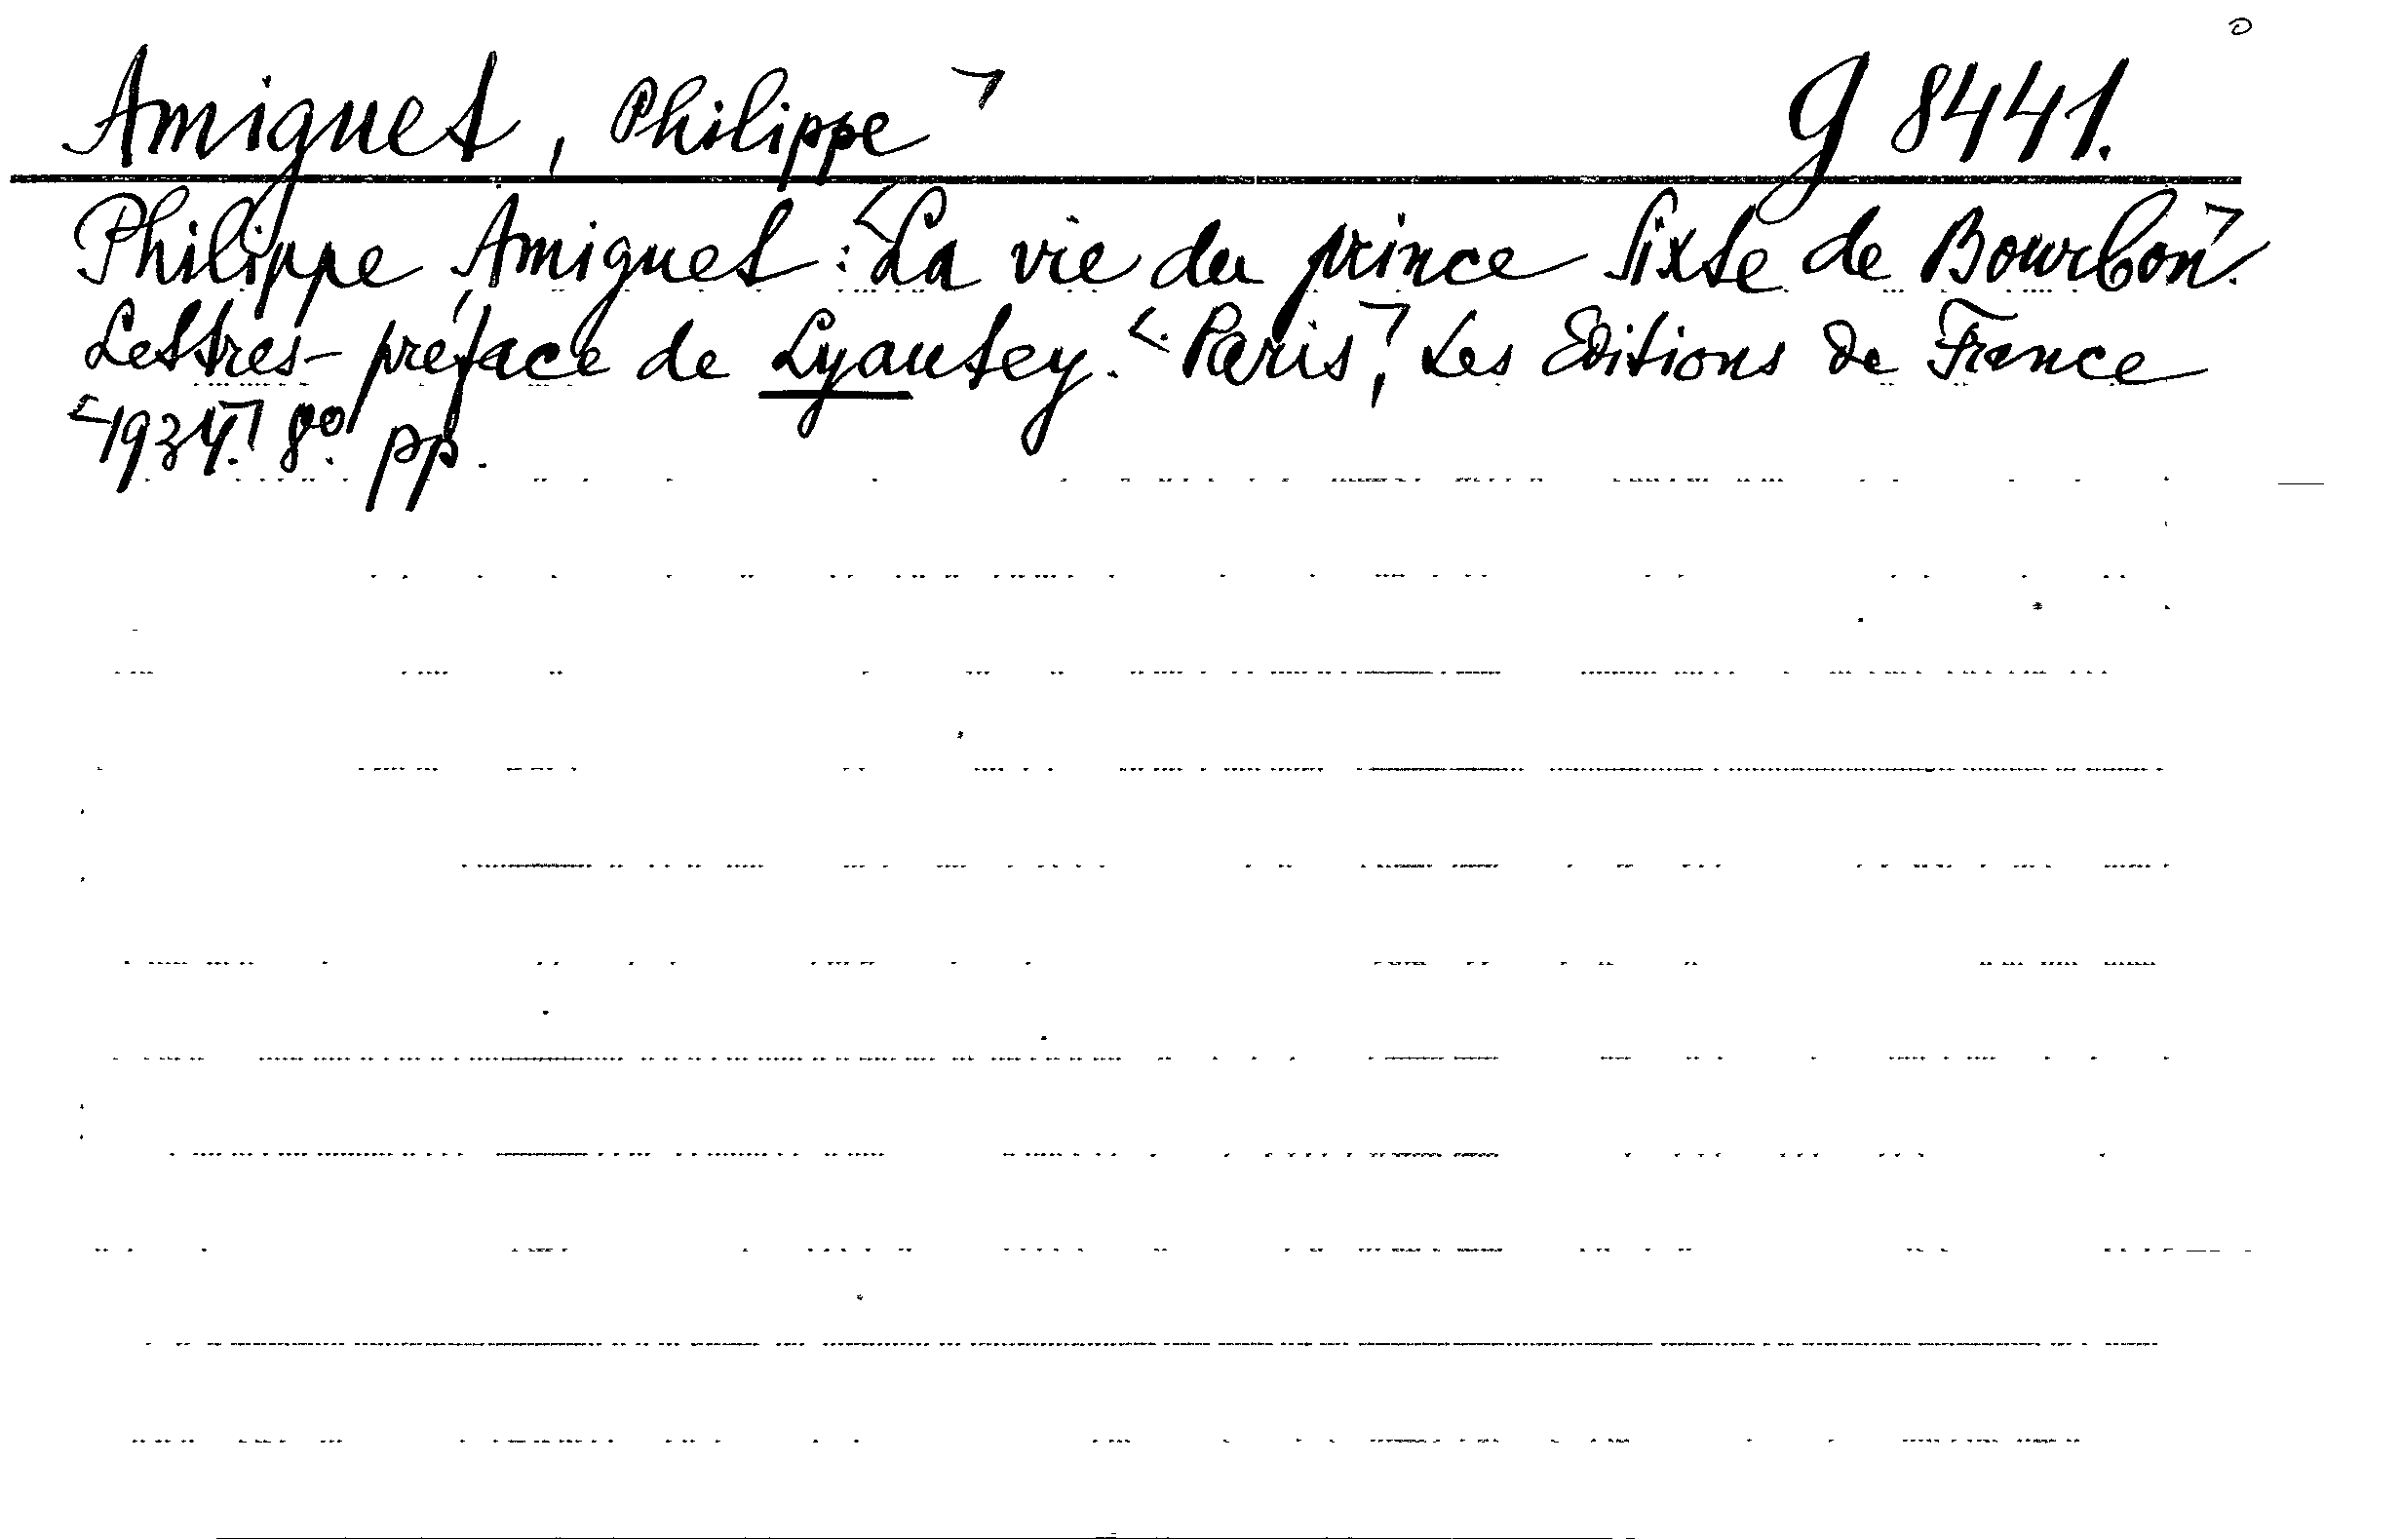 Amiguet, Philippe ꓶ g 8441.
Philippe Amiguet: <La vie du prince Sixte de Bourbonꓶ.
Lettres-préface de Lyautey. <Parisꓶ, Les Editions de France
<1934.ꓶ 8° pp.